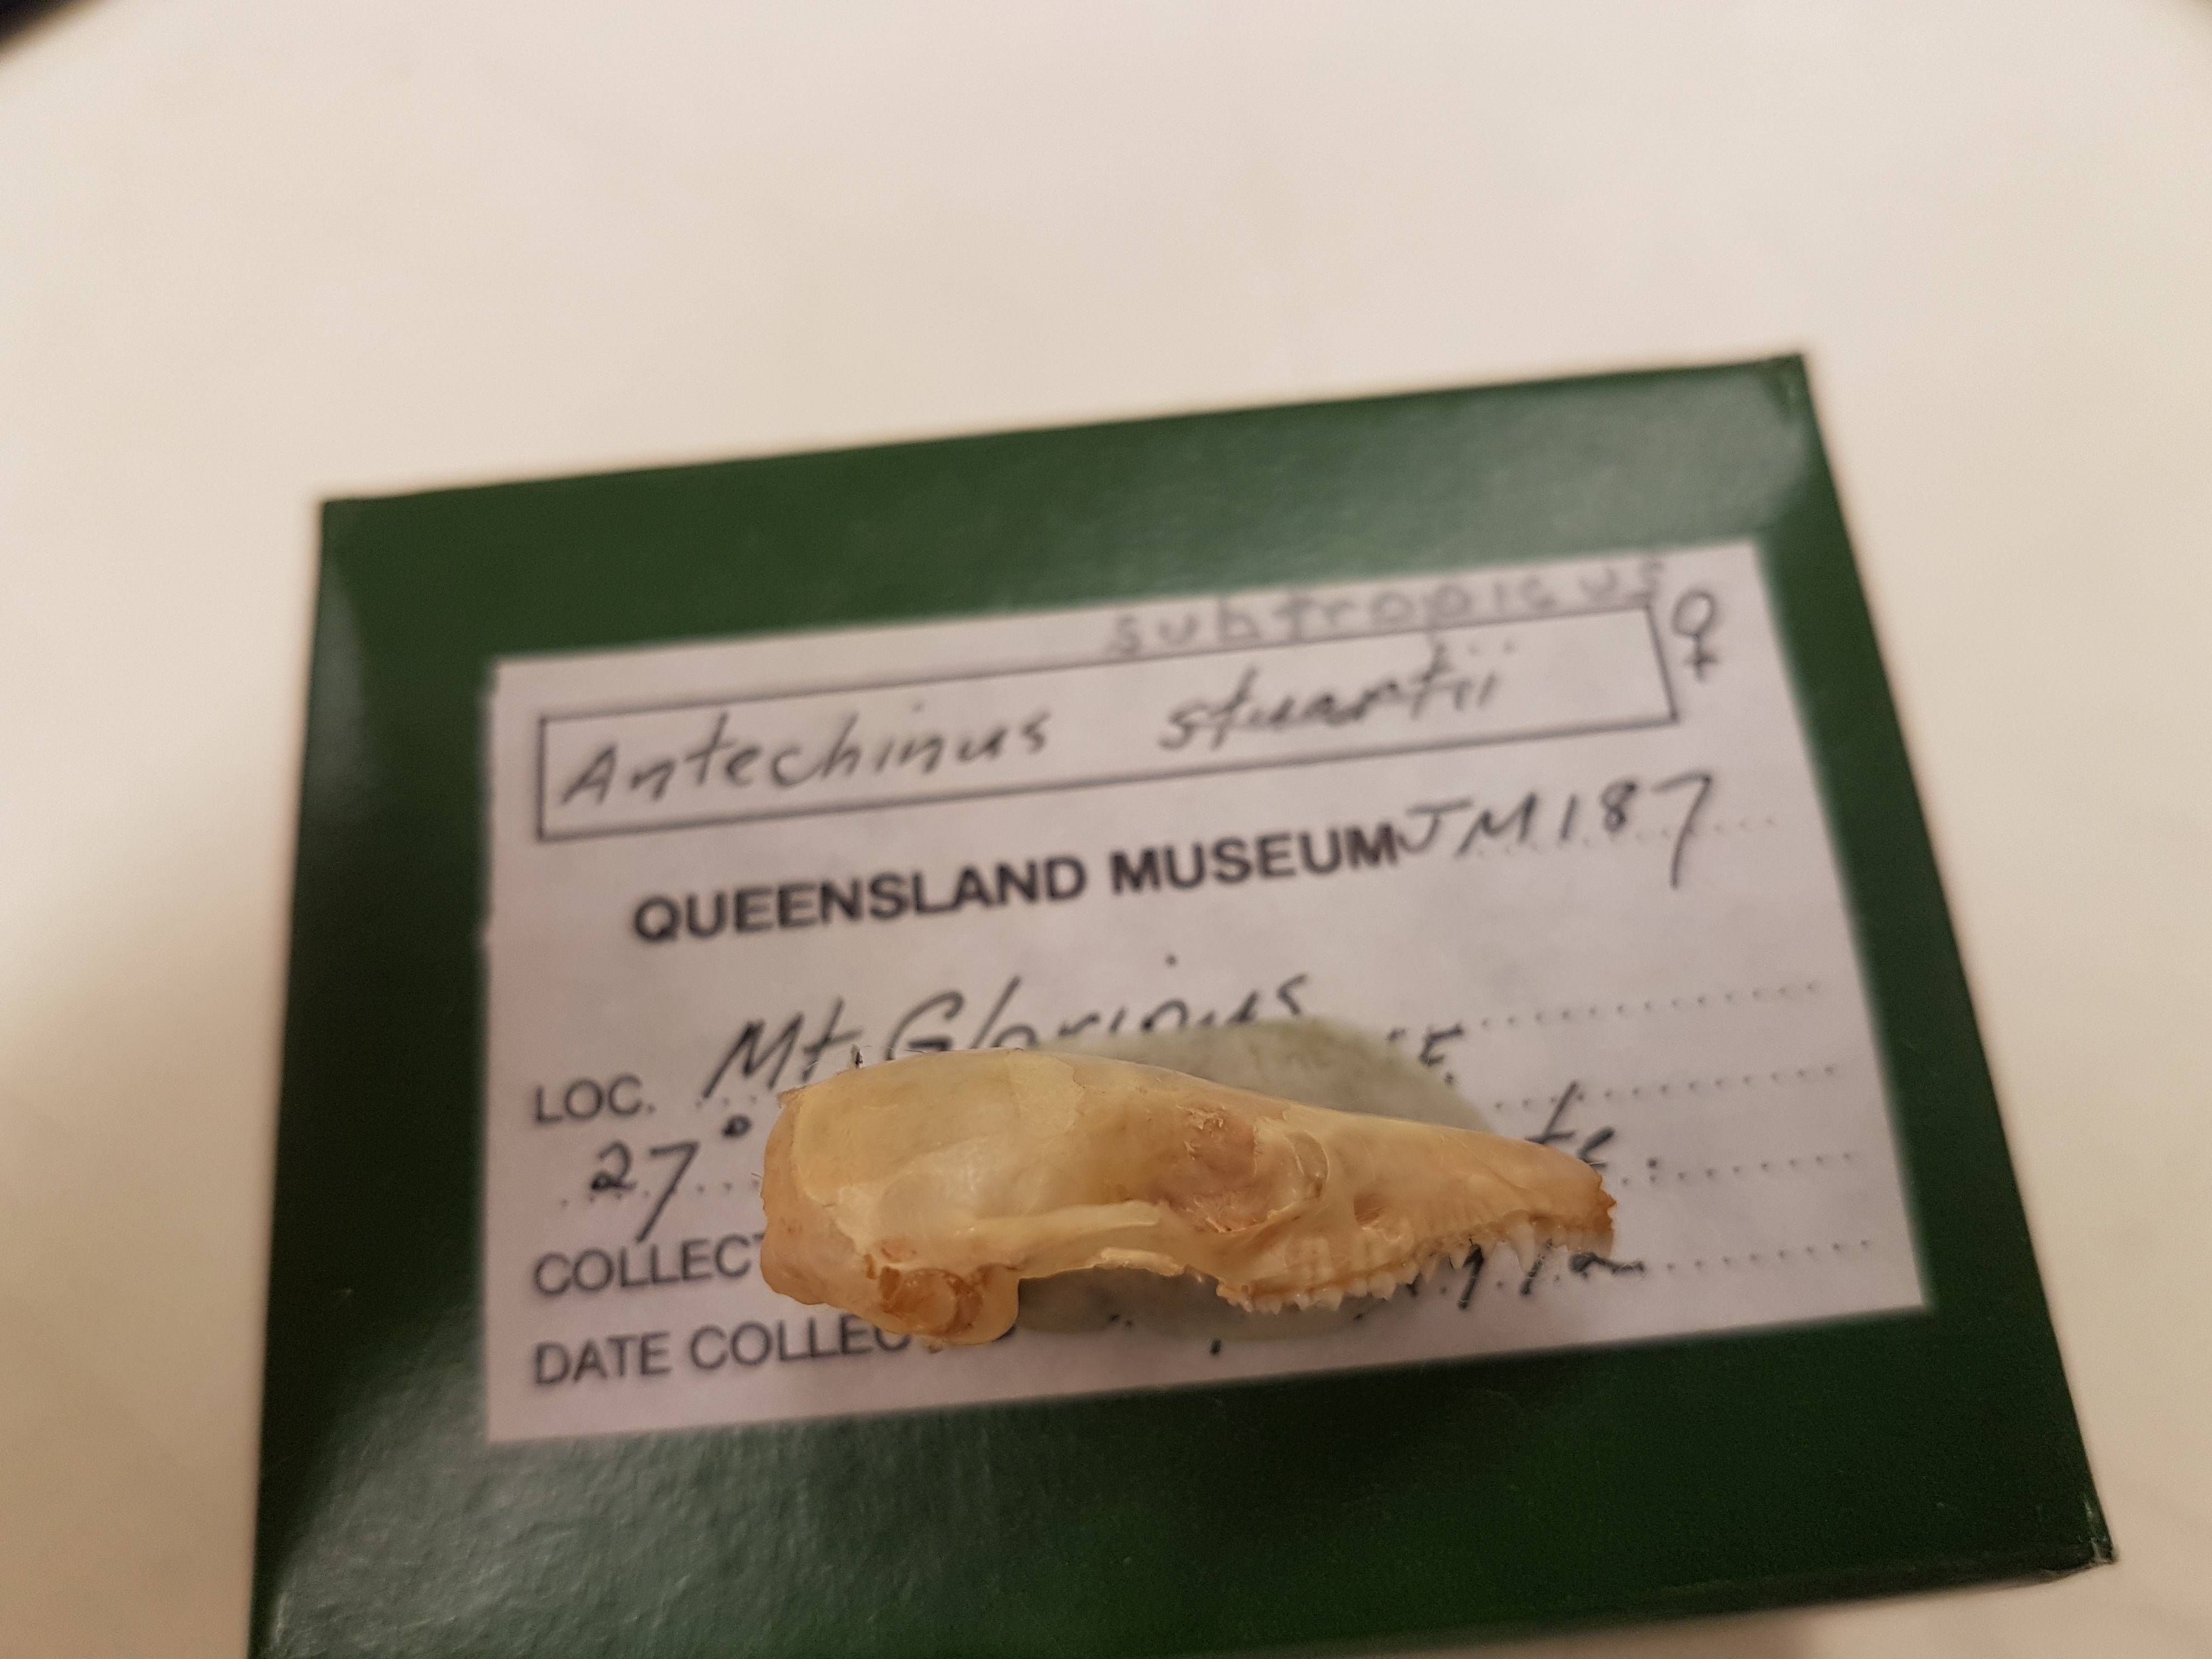 subtropicus
Antechinus stuartii ♀
QUEENSLAND MUSEUM JM187
LOC. Mt Glorious
27°
COLLECT
DATE COLLEC